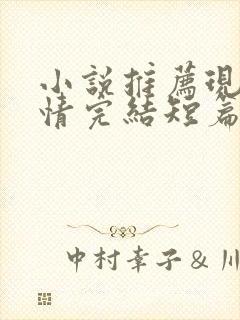 小說推薦現
情完結短篇
中村幸子 & 川